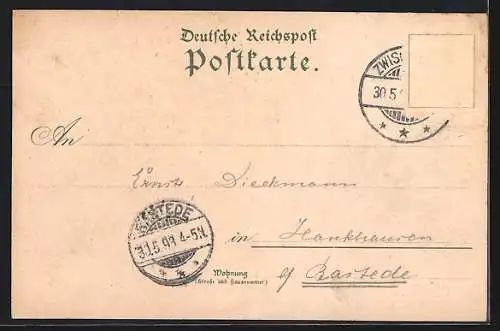 Deutsche Reichspost
Postkarte.
ZWISCH
30 5
An
Ernst Dieckmann
STEDE
30.5.98 4-5N.
in Hankhausen
Wohnung
(Straße und Hausnummer)
b/ Rastede